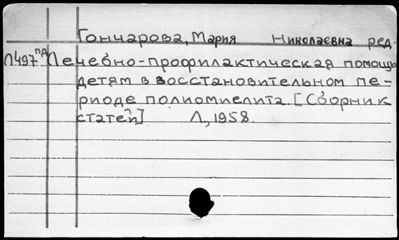 Гончарова, Мария Николаевна ред.
Л497пд Лечебно-профилактическая помощь
детям в восстановительном пе-
риоде полиомиелита. [Сборник
статей] Л, 1958.